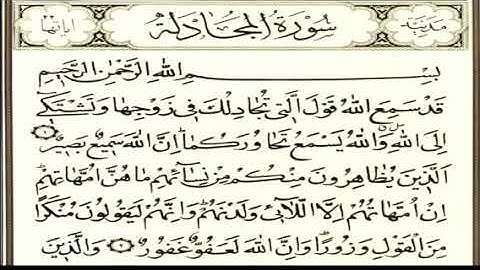 مدنية سورة المجادلة آياتها
بِسْمِ اللهِ الرَّحْمٰنِ الرَّحِيمِ
قَدْ سَمِعَ اللهُ قَوْلَ الَّتِي تُجَادِلُكَ فِي زَوْجِهَا وَتَشْتَكِي
إِلَى اللهِ وَاللهُ يَسْمَعُ تَحَاوُرَكُمَا إِنَّ اللهَ سَمِيعٌ بَصِيرٌ
الَّذِينَ يُظَاهِرُونَ مِنْكُمْ مِنْ نِسَائِهِمْ مَا هُنَّ أُمَّهَاتِهِمْ
إِنْ أُمَّهَاتُهُمْ إِلَّا اللَّائِي وَلَدْنَهُمْ وَإِنَّهُمْ لَيَقُولُونَ مُنْكَرًا
مِنَ الْقَوْلِ وَزُورًا وَإِنَّ اللهَ لَعَفُوٌّ غَفُورٌ وَالَّذِينَ